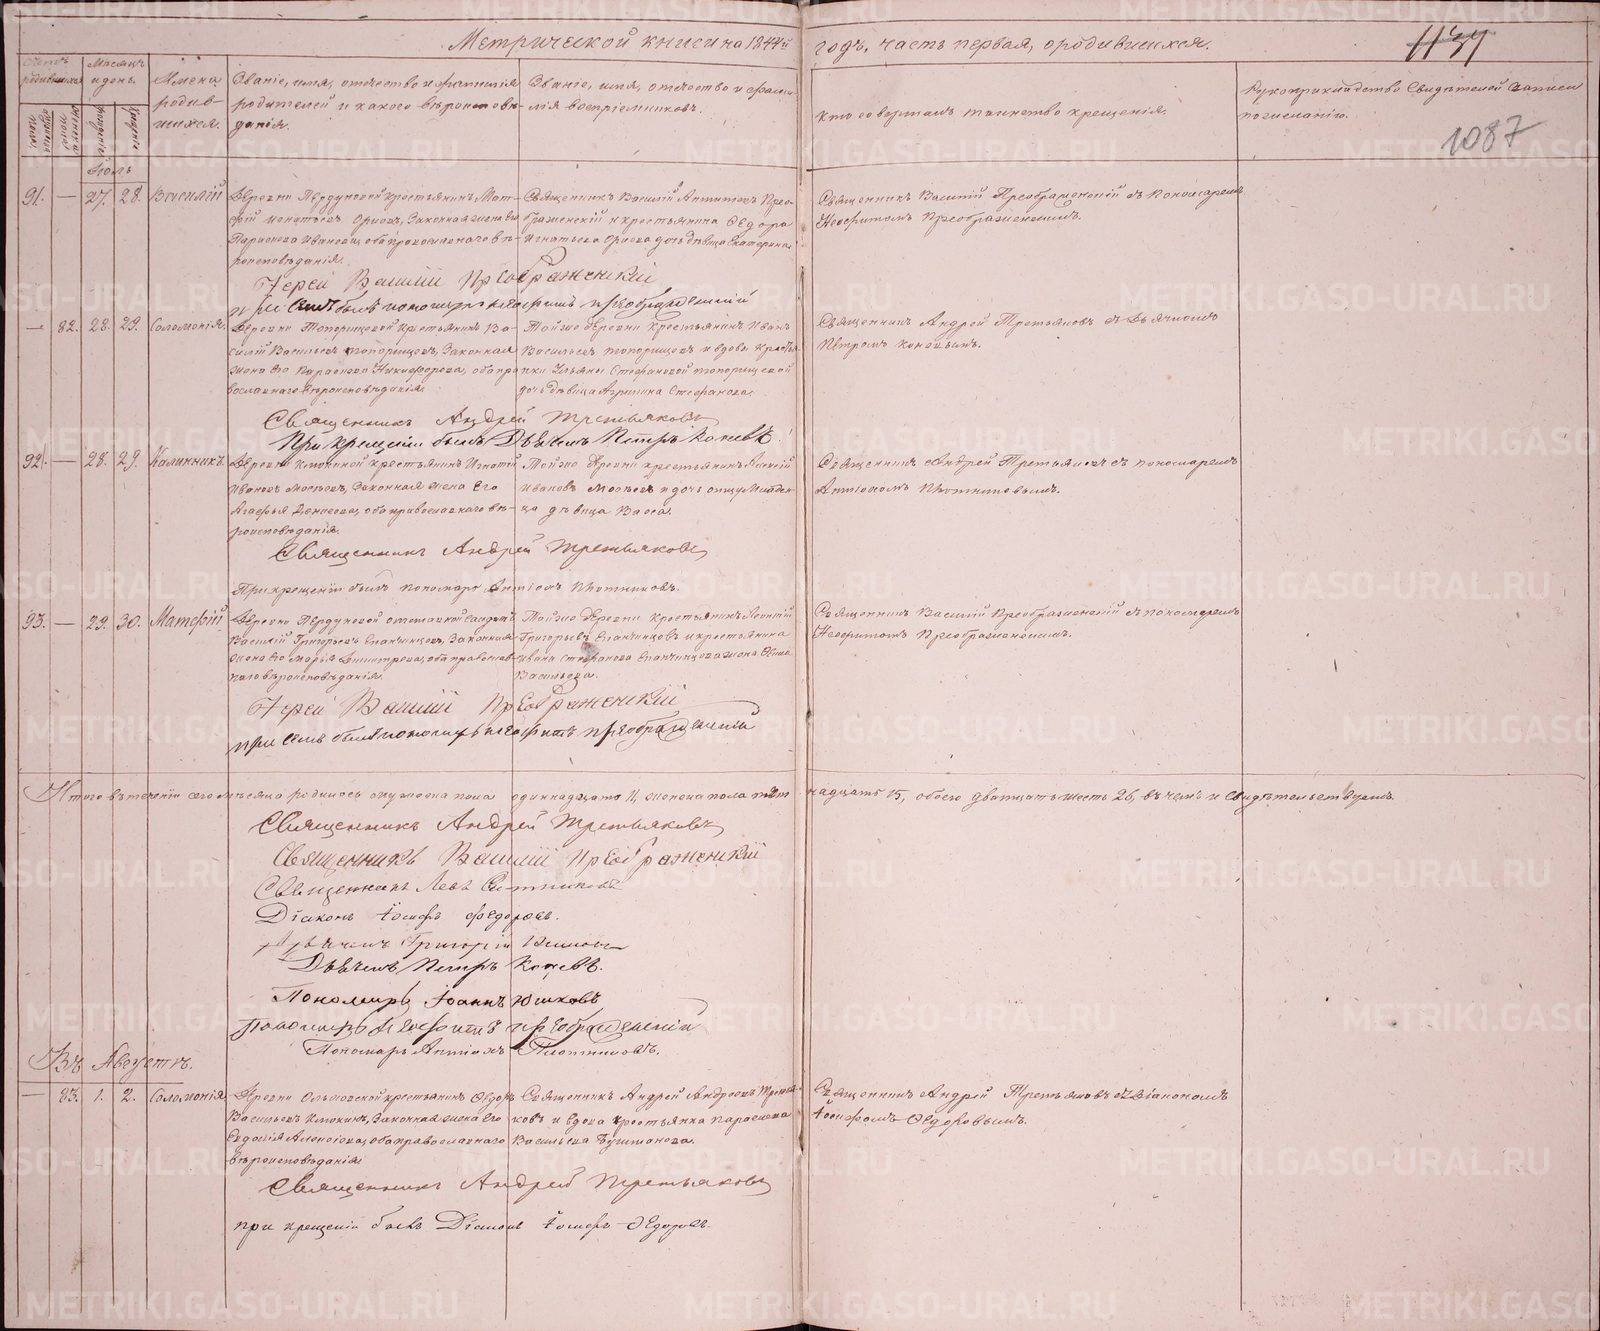 Метрической книги на 1844й годъ, часть первая, о родившихся.
1137
1087
Счетъ родившихся
Мѣсяцъ и день.
Имена родившихся.
Званіе, имя, отчество и фамилія родителей и какого вѣроисповѣданія.
Званіе, имя, отчество и фамилія воспріемниковъ.
Кто совершалъ таинство крещенія.
Рукоприкладство свидѣтелей записи по желанію.
Іюль
91. — 27. 28. Василій
Деревни
крестьянинъ
Орловъ, Законная жена его
Параскева Иванова, оба православнаго вѣ-
роисповѣданія.
Священникъ Василій
Прео-
браженскій и крестьянина Ѳедора
Игнатьева Орлова дочь дѣвица Екатерина
Священникъ Василій Преображенскій съ пономаремъ
Неофитомъ Преображенскимъ.
Іерей Василій Преображенскій
при семъ былъ пономарь Неофитъ Преображенскій
— 82. 28. 29. Соломонія.
Деревни Топорищевой крестьянинъ Ва-
силій Васильевъ Топорищевъ, Законная
жена его Параскева Никифорова, оба пра-
вославнаго вѣроисповѣданія.
Тойже деревни крестьянинъ Иванъ
Васильевъ Топорищевъ и вдовы кресть-
янки Ульяны Стефановой Топорищевой
дочь дѣвица Агрипина Стефанова.
Священникъ Андрей Третьяковъ съ дьячкомъ
Петромъ Коневымъ.
Священникъ Андрей Третьяковъ
При крещеніи былъ Дьячекъ Петръ Коневъ.
92. — 28. 29. Каллиникъ.
Деревни
крестьянинъ Игнатій
Ивановъ
Законная жена его
Агафья Денисова, оба православнаго вѣ-
роисповѣданія.
Тойже деревни крестьянинъ Алексій
Ивановъ
и дочь
дѣвица Васса.
Священникъ Андрей Третьяковъ съ пономаремъ
Антіохомъ Плотниковымъ.
Священникъ Андрей Третьяковъ
При крещеніи былъ пономарь Антіохъ Плотниковъ.
93. — 29. 30. Матфій.
Деревни
отставной солдатъ
Василій Григорьевъ Епанчинцовъ, Законная
жена его Марья Димитрева, оба православ-
наго вѣроисповѣданія.
Тойже деревни крестьянинъ Леонтій
Григорьевъ Епанчинцовъ и крестьянина
Ивана Стефанова Епанчинцова жена
Васильева.
Священникъ Василій Преображенскій съ пономаремъ
Неофитомъ Преображенскимъ.
Іерей Василій Преображенскій
при семъ былъ пономарь Неофитъ Преображенскій
Итого въ теченіи сего мѣсяца родилось мужеска пола одиннадцать 11, женска пола пятнадцать 15, обоего дватцать шесть 26, въ чемъ и свидѣтельствуемъ.
Священникъ Андрей Третьяковъ
Священникъ Василій Преображенскій
Священникъ Левъ Ситниковъ
Діаконъ Іосифъ Ѳедоровъ.
Дьячекъ Григорій
Дьячекъ Петръ Коневъ.
Пономарь Іоаннъ Юшковъ
Пономарь Неофитъ Преображенскій
Пономарь Антіохъ Плотниковъ.
Въ Августѣ.
— 83. 1. 2. Соломонія
Деревни
крестьянинъ Ѳедоръ
Васильевъ
Законная жена его
Евдокія Алексіева, оба православнаго
вѣроисповѣданія
Священникъ Андрей Андреевъ Третья-
ковъ и вдова крестьянка Параскева
Васильева
Священникъ Андрей Третьяковъ съ діакономъ
Іосифомъ Ѳедоровымъ.
Священникъ Андрей Третьяковъ
при крещеніи былъ Діаконъ Іосифъ Ѳедоровъ.
METRIKI.GASO-URAL.RU